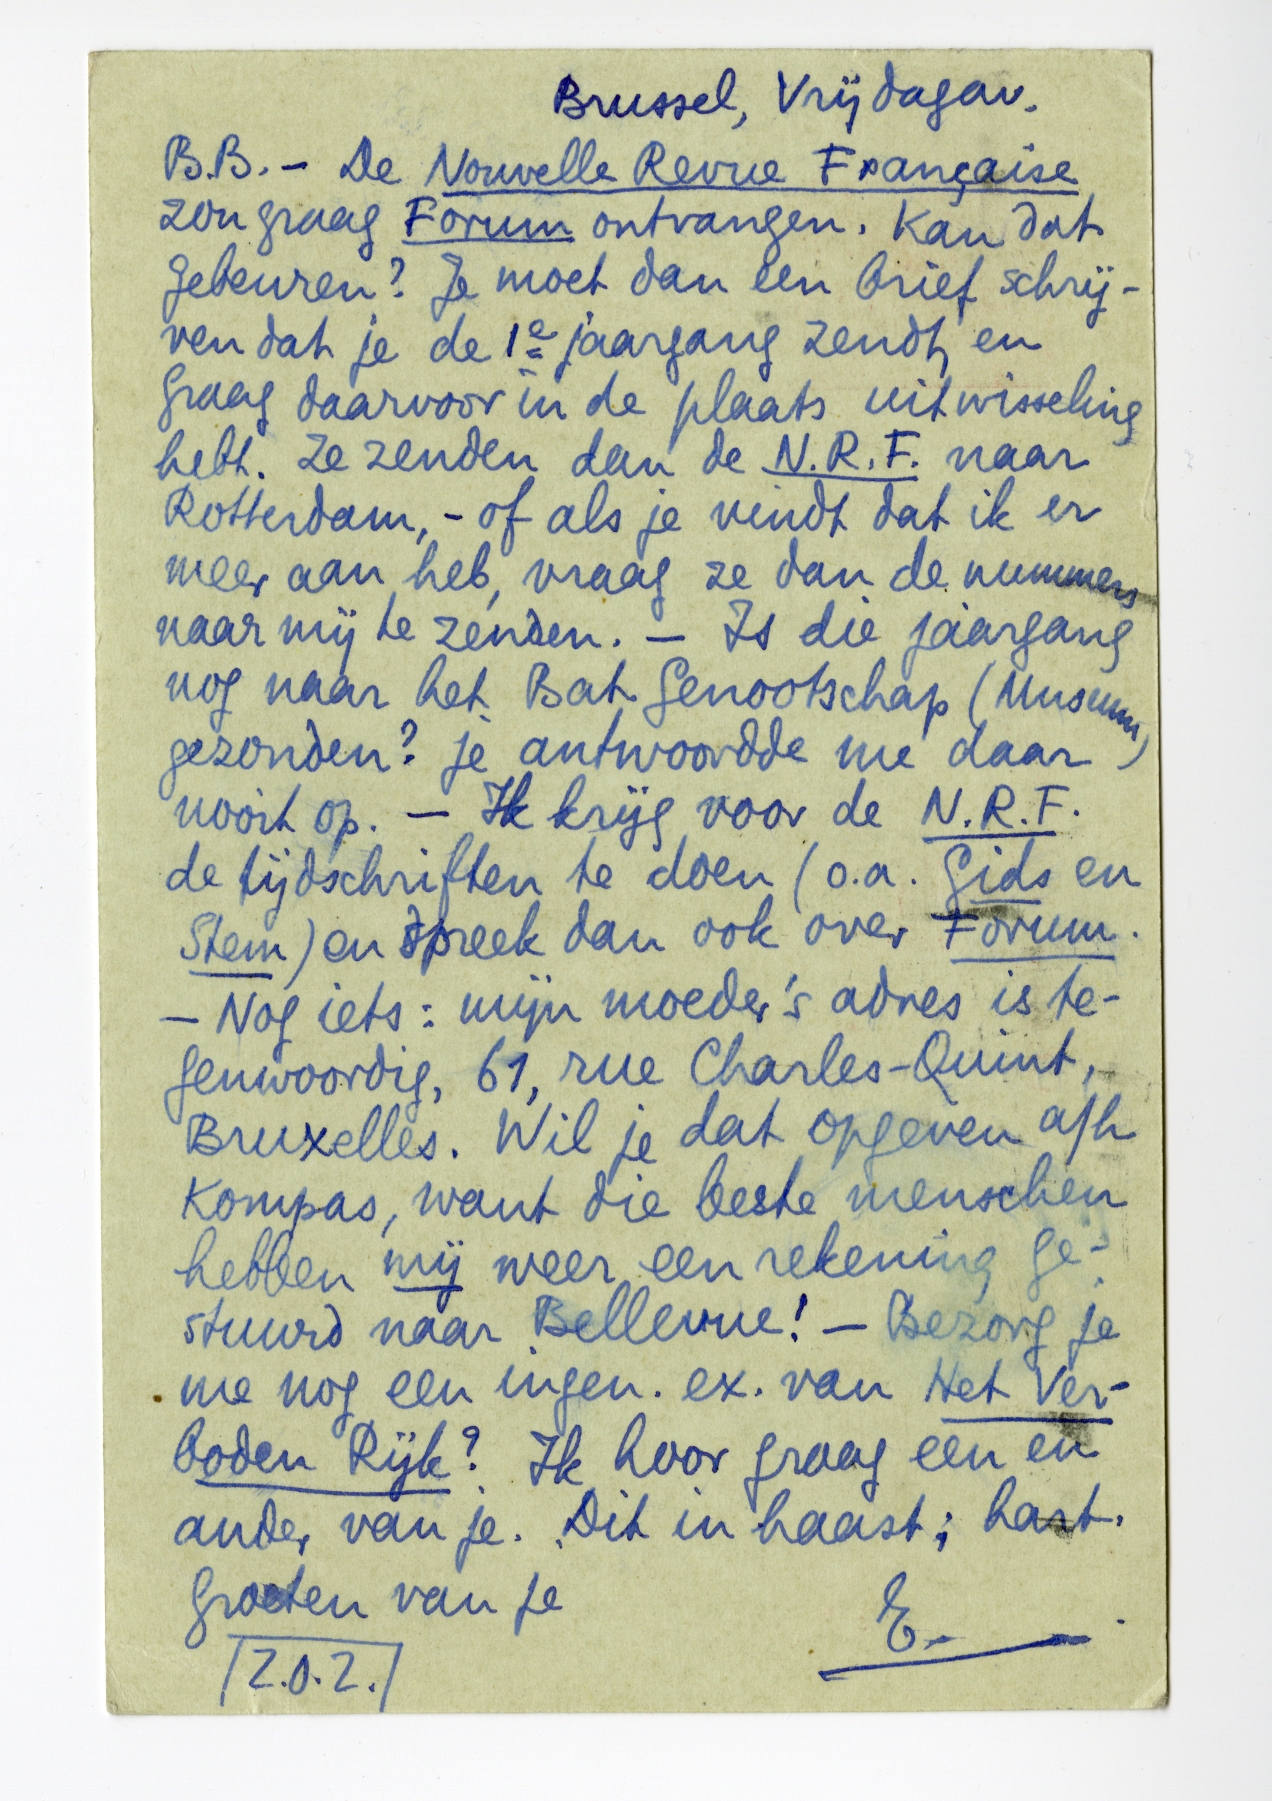 Brussel, Vrijdagav.
B.B. – De Nouvelle Revue Française
zou graag Forum ontvangen. Kan dat
gebeuren? Je moet dan een brief schrij-
ven dat je de 1e jaargang zendt, en
graag daarvoor in de plaats uitwisseling
hebt. Ze zenden dan de N.R.F. naar
Rotterdam, – of als je vindt dat ik er
meer aan heb, vraag ze dan de nummers
naar mij te zenden. – Is die jaargang
nog naar het Bat. Genootschap (Museum)
gezonden? Je antwoordde me daar
nooit op. – Ik krijg voor de N.R.F.
de tijdschriften te doen (o.a. Gids en
Stem) en spreek dan ook over Forum.
– Nog iets: mijn moeder's adres is te-
genwoordig, 61, rue Charles-Quint,
Bruxelles. Wil je dat opgeven a/h
Kompas, want die beste menschen
hebben mij weer een rekening ge-
stuurd naar Bellevue! – Bezorg je
me nog een ingen. ex. van Het Ver-
boden Rijk? Ik hoor graag een en
ander van je. Dit in haast; hart.
groeten van je
E.
Z.O.Z.